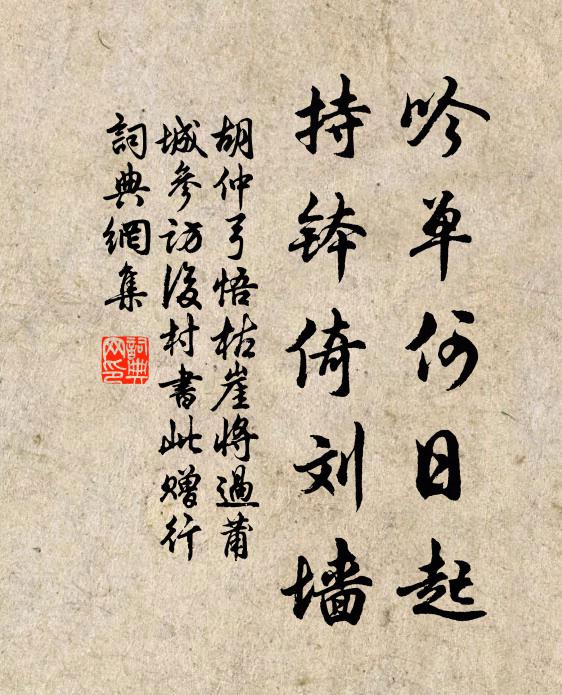 吟单何日起
持钵倚刘墙
胡仲弓悟枯崖将過莆
城参访後村書此赠行
詞典網集
詞典网印